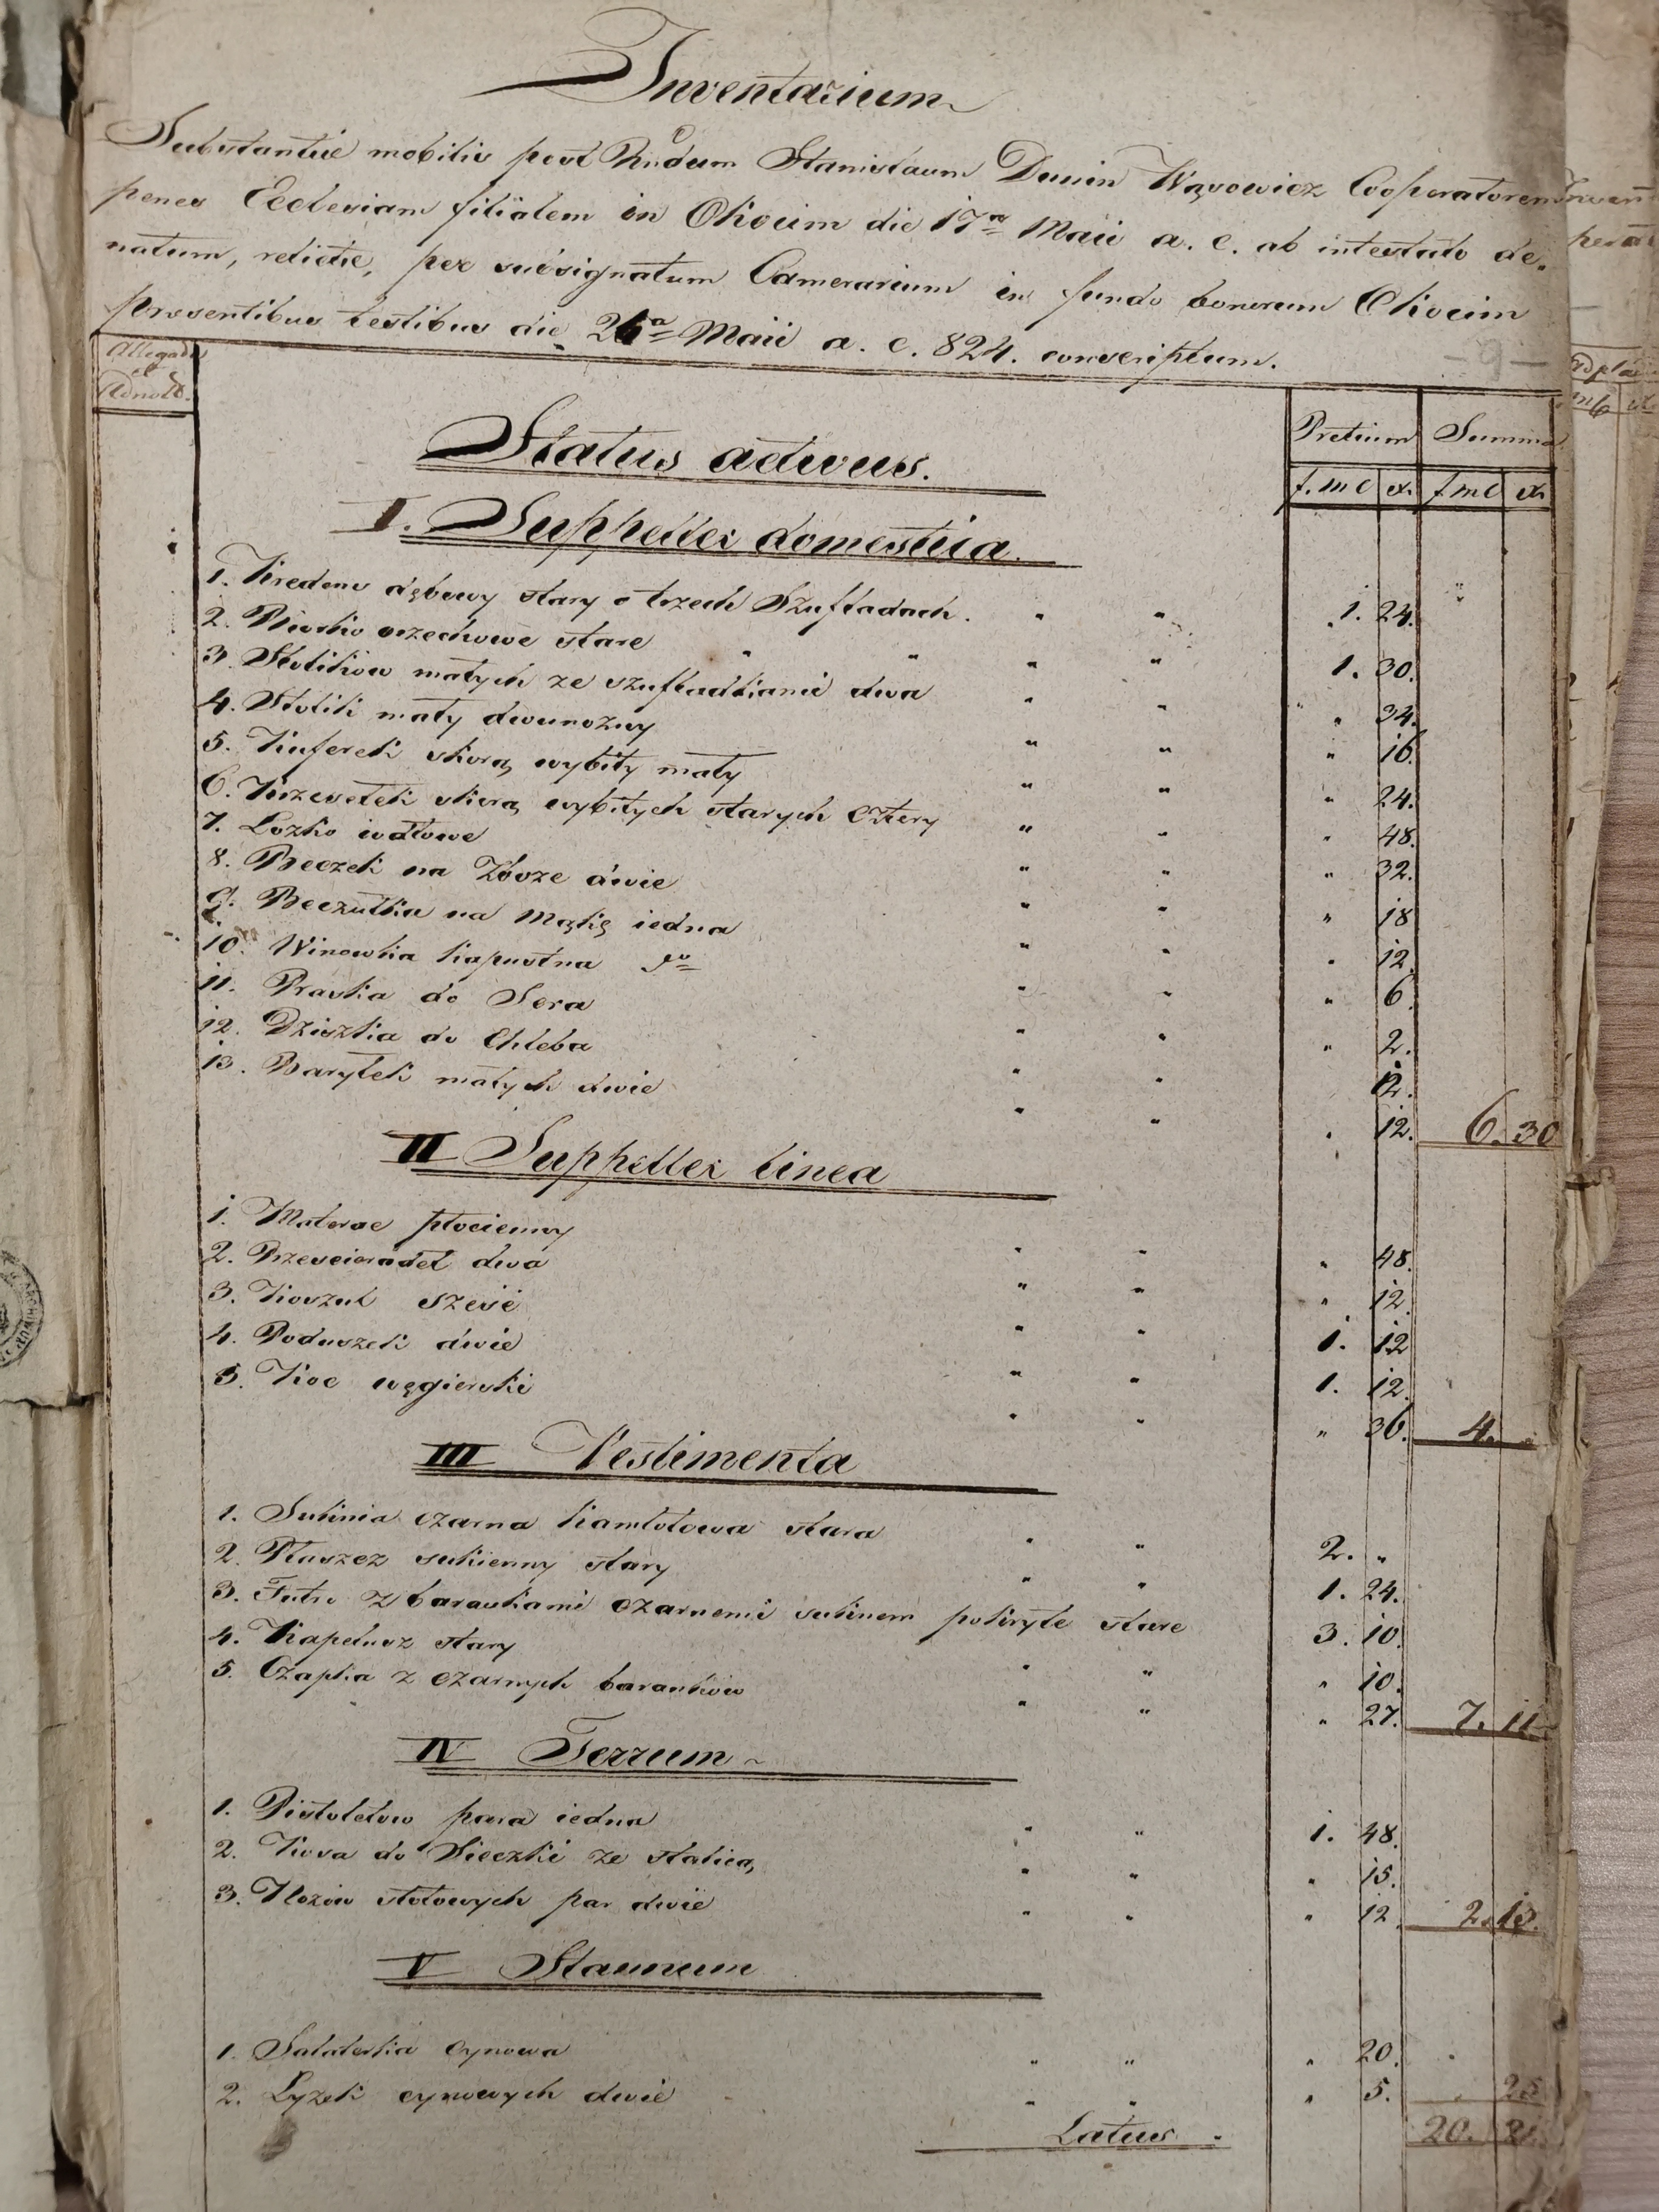 Inventarium
Substantiae mobilis post Rndum Stanisłaum Dunin Wąsowicz Cooperatorem
penes Ecclesiam filialem in Okocim die 17ma Maii a. c. ab intestato de-
natum, relictae, per subsignatum Camerarium in fundo bonorum Okocim
praesentibus testibus die 26a Maii a. c. 824. conscriptum.
Allegata
et
Adnott.
Pretium Summa
f. m c xr f m c xr
Status activus.
I. Suppellex domestica.
1. Kredens dębowy stary o trzech Szufladach. " " 1. 24.
2. Biurko orzechowe stare " " " " 1. 30.
3. Stolikow małych ze szufladkami dwa " " " " 34.
4. Stolik mały dwunożny " " " 16.
5. Kuferek skorą wybity mały " " " 24.
6. Krzesełek skorą wybitych starych cztery " " " 48.
7. Łozko iodłowe " " " 32.
8. Beczek na Zboze dwie " " " 18
9. Beczułka na Mąkę iedna " " " 12
10. Winowka kapustna do " " " 6.
11. Praska do Sera " " " 2.
12. Dziszka do Chleba " " 12.
13. Baryłek małych dwie " " " 12. 6. 30
II Suppellex linea
1. Materac płocienny " " " 48.
2. Przescieradeł dwa " " " 12.
3. Koszul sześć " " 1. 12
4. Poduszek dwie " " 1. 12.
5. Koc węgierski " " " 36. 4. "
III Vestimenta
1. Suknia czarna kamlotowa stara " " 2. "
2. Płaszcz sukienny stary " " 1. 24.
3. Futro z barankami czarnemi suknem pokryte stare 3. 10.
4. Kapelusz stary " " " 10.
5. Czapka z czarnych barankow " " " 27. 7. 11
IV Ferrum
1. Pistoletow para iedna " " 1. 48.
2. Kosa do Sieczki ze stolicą " " " 15.
3. Nozow stołowych par dwie " " " 12. 2. 15.
V Stannum
1. Salaterka cynowa " " " 20.
2. Łyzek cynowych dwie " " " 5. " 25
Latus . 20. 21